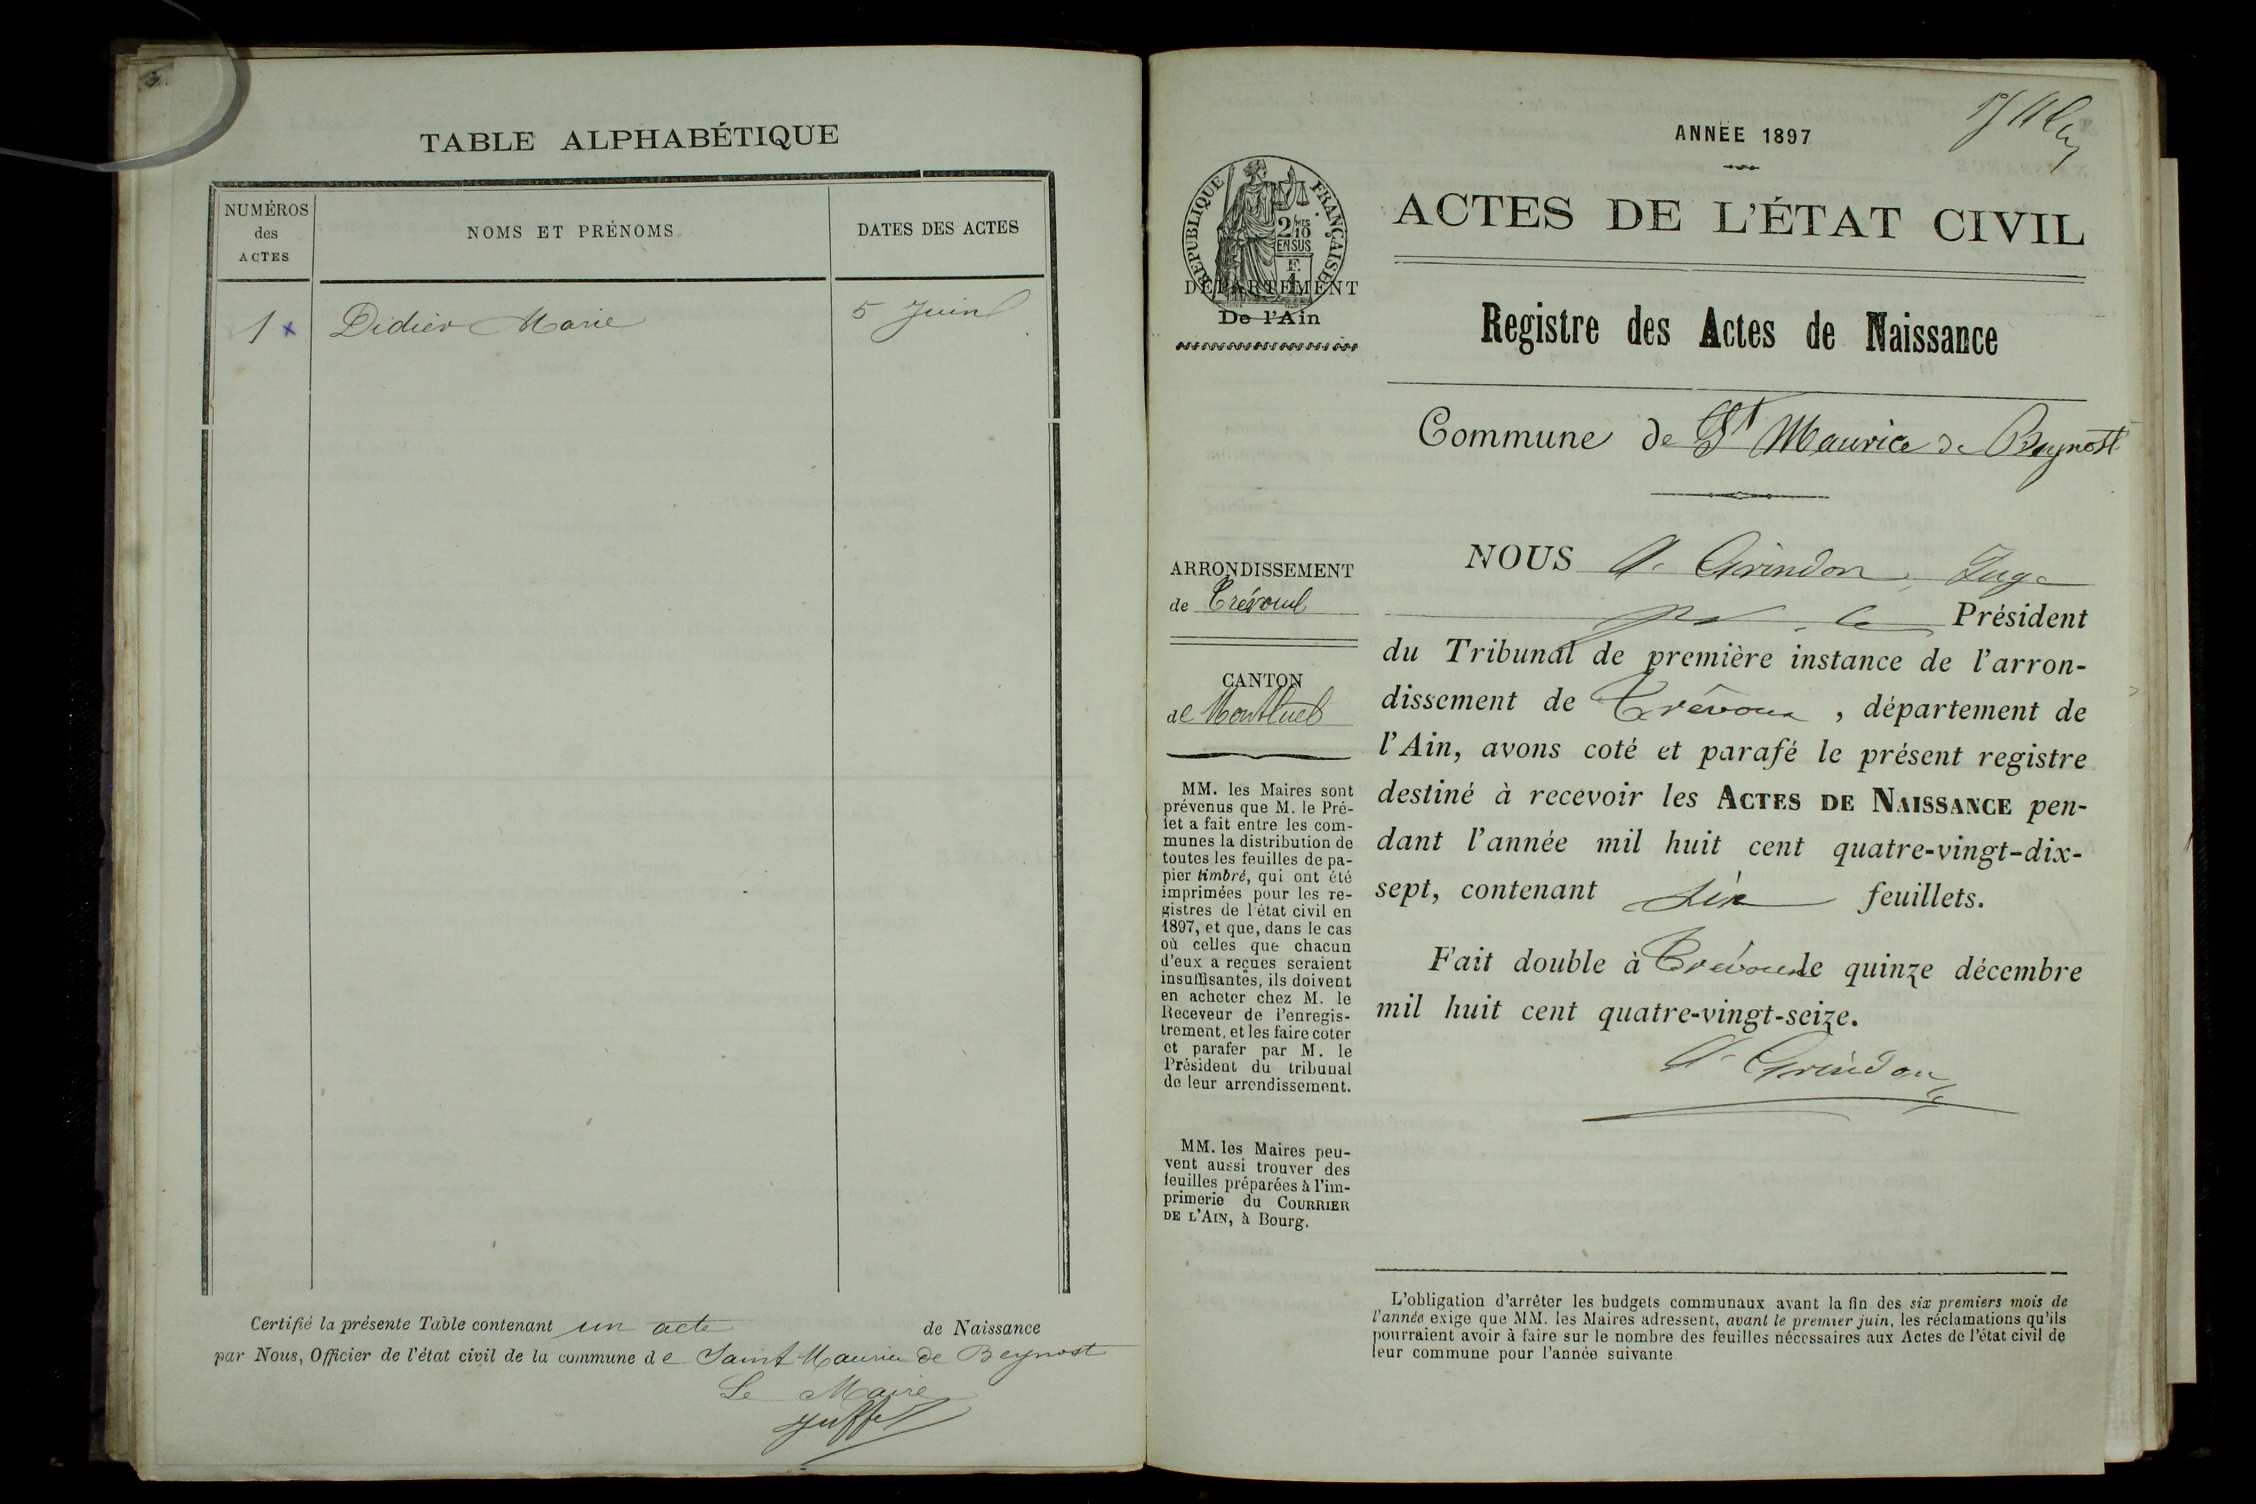 TABLE ALPHABÉTIQUE
NUMÉROS
des
ACTES
NOMS ET PRÉNOMS
DATES DES ACTES
1 x
Didier Marie
5 Juin
Certifié la présente Table contenant un acte de Naissance
par Nous, Officier de l'état civil de la commune de Saint Maurice de Beynost
Le Maire
ANNÉE 1897
RÉPUBLIQUE FRANÇAISE
2 10
EN SUS
E
1
DÉPARTEMENT
De l'Ain
ACTES DE L'ÉTAT CIVIL
Registre des Actes de Naissance
Commune de St Maurice de Beynost
ARRONDISSEMENT
de Trévoux
CANTON
de Montluel
MM. les Maires sont
prévenus que M. le Pré-
fet a fait entre les com-
munes la distribution de
toutes les feuilles de pa-
pier timbré, qui ont été
imprimées pour les re-
gistres de l'état civil en
1897, et que, dans le cas
où celles que chacun
d'eux a reçues seraient
insuffisantes, ils doivent
en acheter chez M. le
Receveur de l'enregis-
trement, et les faire coter
et parafer par M. le
Président du tribunal
de leur arrondissement.
MM. les Maires peu-
vent aussi trouver des
feuilles préparées à l'im-
primerie du COURRIER
DE L'AIN, à Bourg.
NOUS A. Grindon, Juge
pr le Président
du Tribunal de première instance de l'arron-
dissement de Trévoux, département de
l'Ain, avons coté et parafé le présent registre
destiné à recevoir les ACTES DE NAISSANCE pen-
dant l'année mil huit cent quatre-vingt-dix-
sept, contenant six feuillets.
Fait double à Trévoux le quinze décembre
mil huit cent quatre-vingt-seize.
A. Grindon
L'obligation d'arrêter les budgets communaux avant la fin des six premiers mois de
l'année exige que MM. les Maires adressent, avant le premier juin, les réclamations qu'ils
pourraient avoir à faire sur le nombre des feuilles nécessaires aux Actes de l'état civil de
leur commune pour l'année suivante